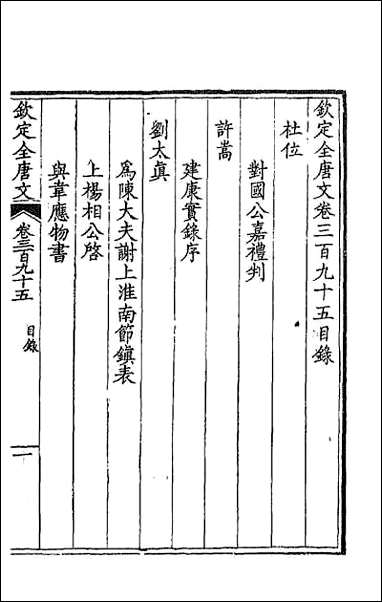 欽定全唐文卷三百九十五目錄
杜位
對國公嘉禮判
許嵩
建康實錄序
劉太眞
爲陳大夫謝上淮南節鎭表
上楊相公啓
與韋應物書
欽定全唐文 卷三百九十五 目錄 一